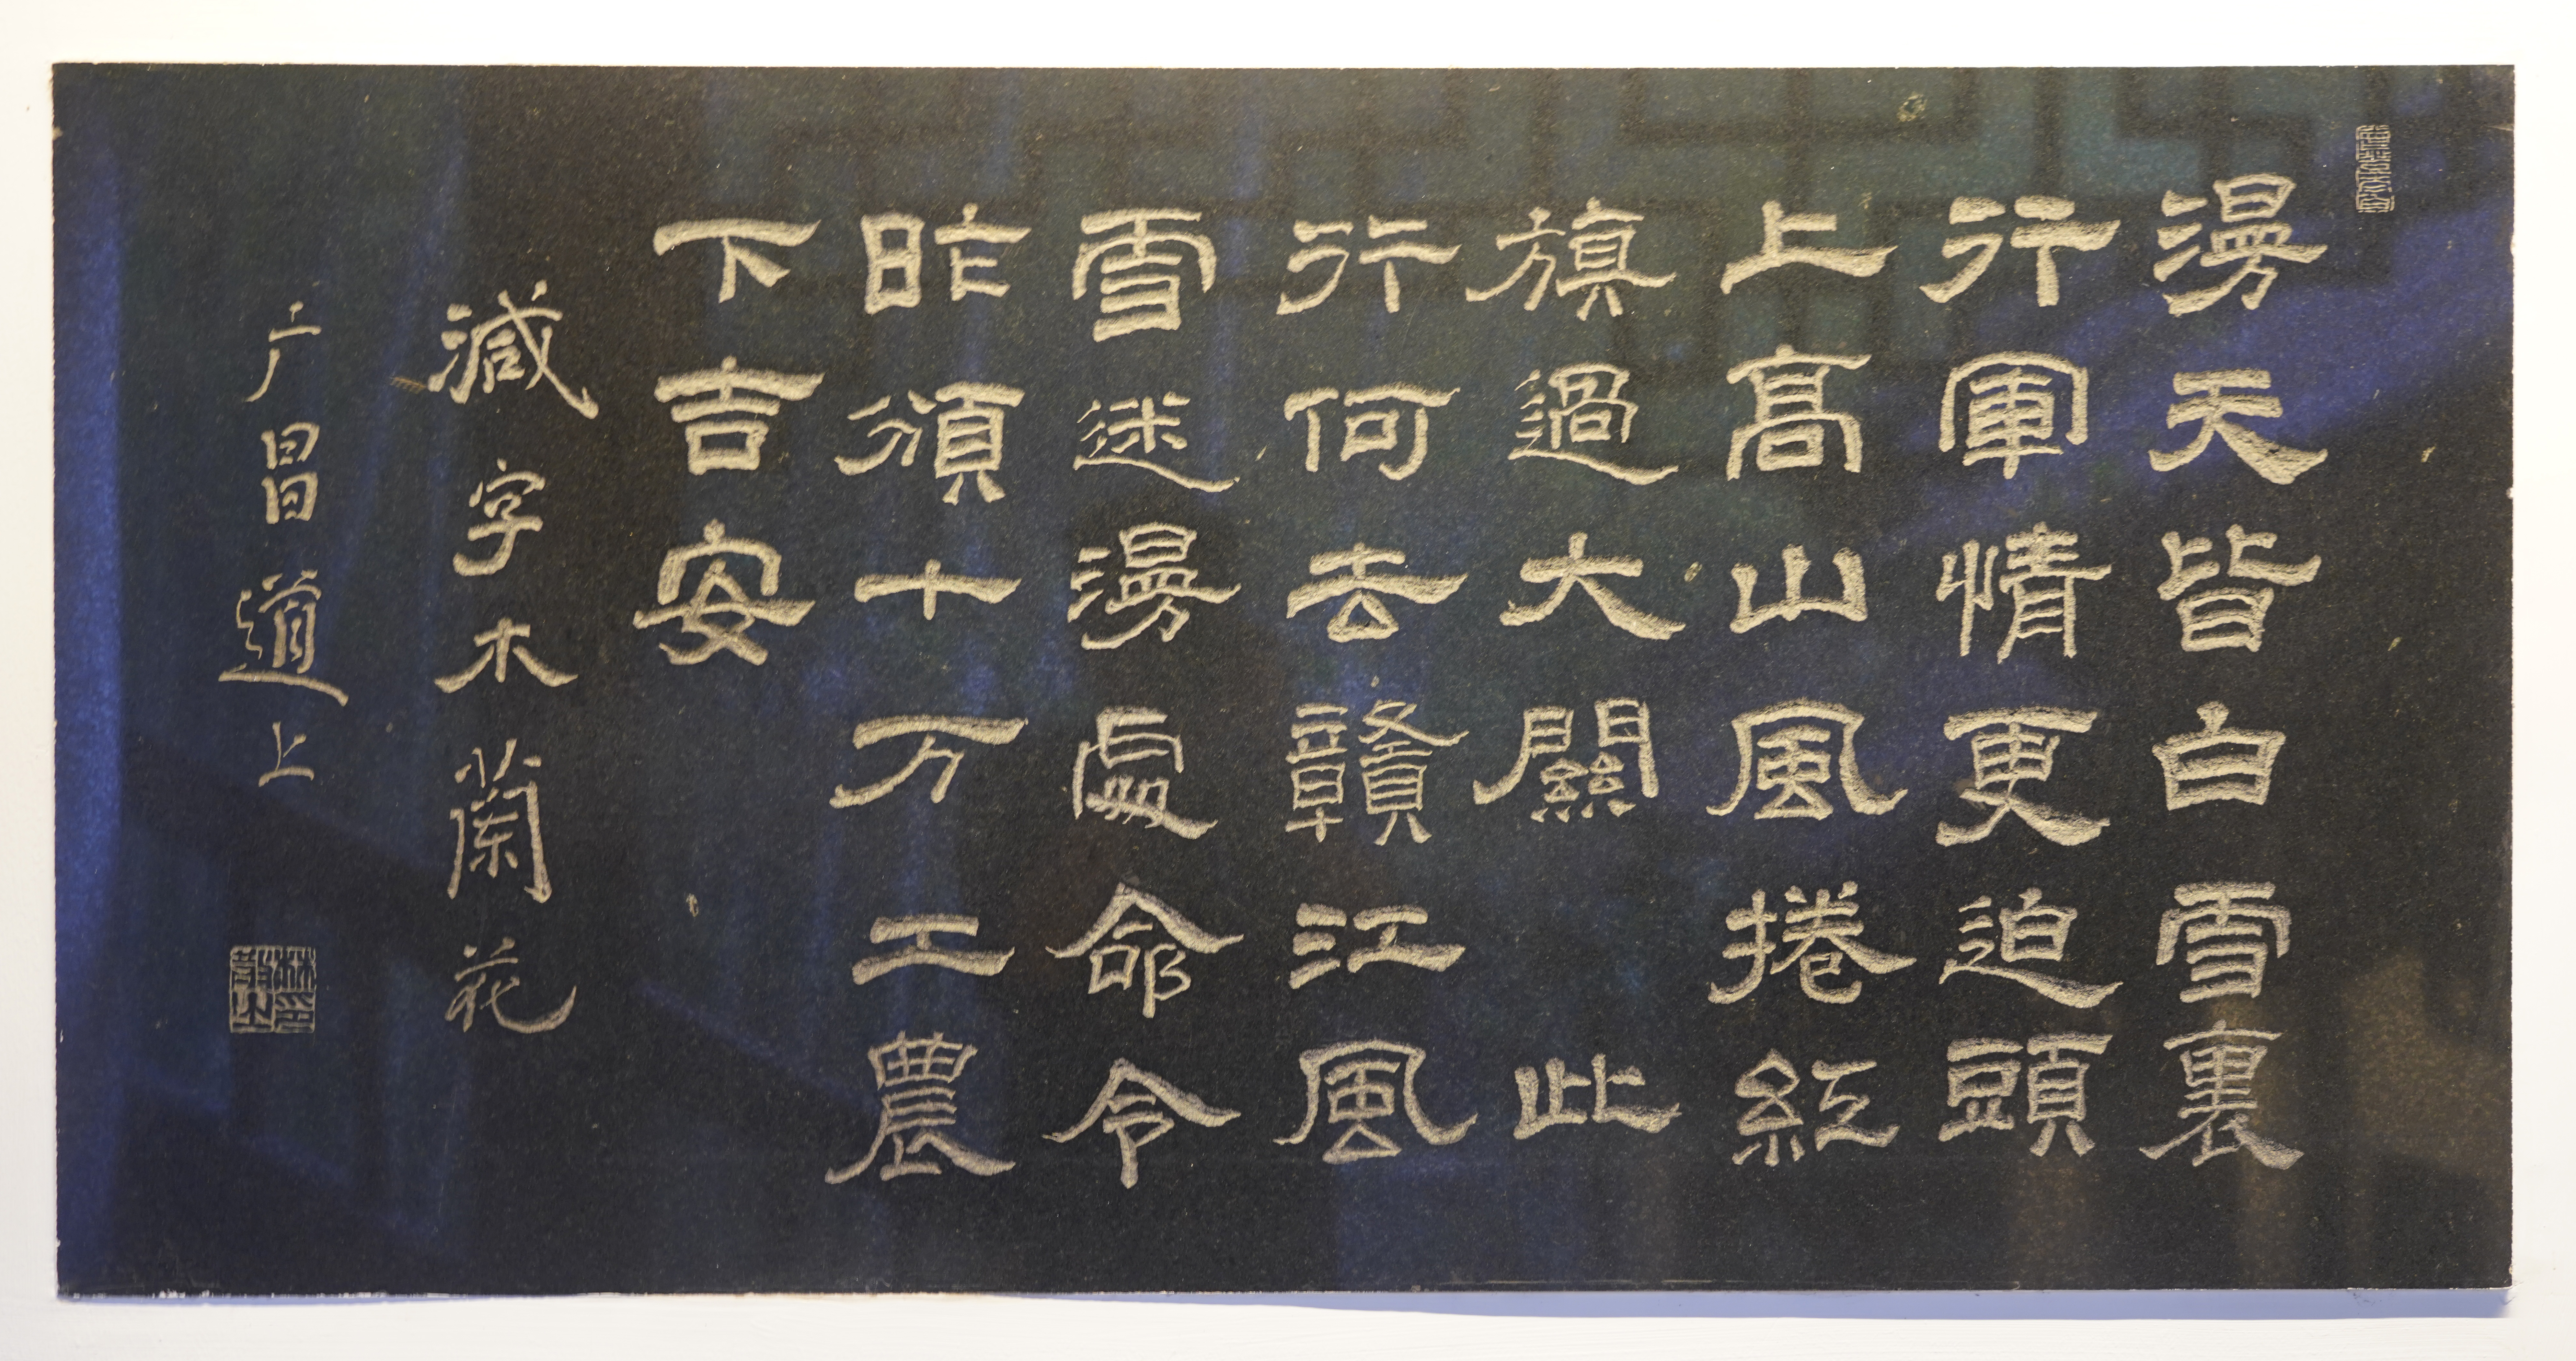 漫天皆白雪裏
行軍情更迫頭
上高山風捲紅
旗過大關此
行何去贛江風
雪迷漫處命令
昨頒十万工農
下吉安
減字木蘭花
广昌道上